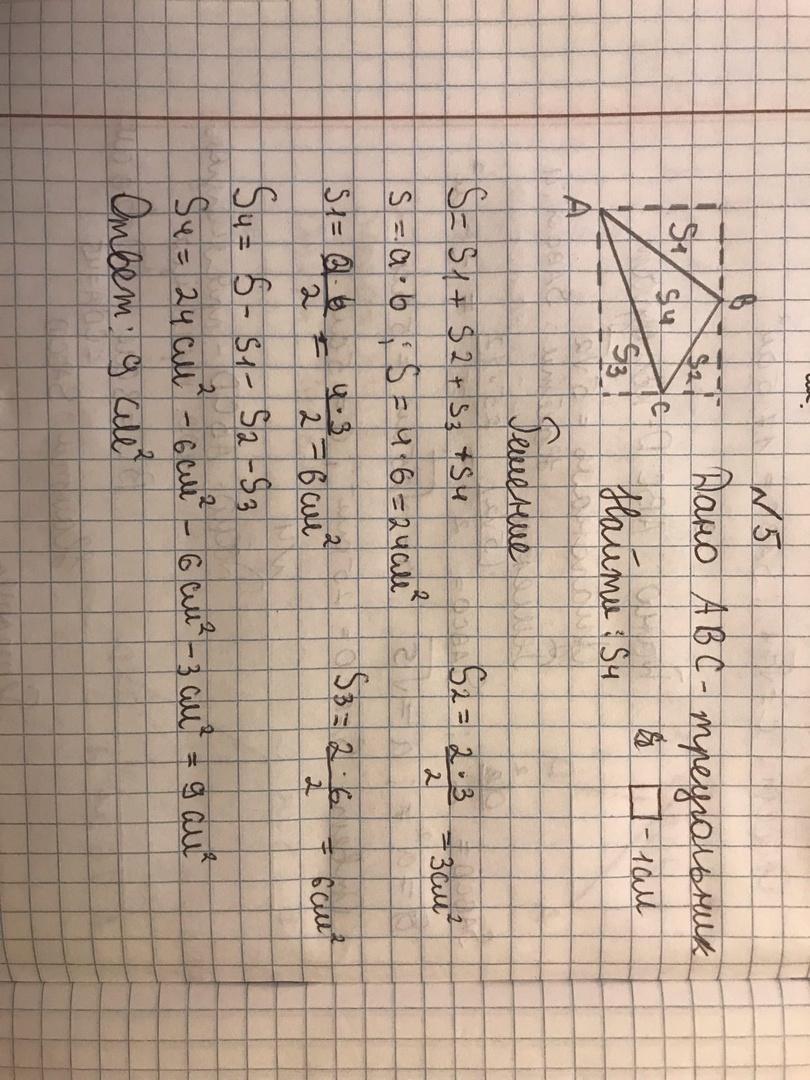 №5
Дано ABC - треугольник
Найти: S4
□ - 1см
A
B
C
S1
S2
S4
S3
Решение
S = S1 + S2 + S3 + S4
S = a · b ; S = 4 · 6 = 24 см²
S1 = a · b / 2 = 4 · 3 / 2 = 6 см²
S2 = 2 · 3 / 2 = 3 см²
S3 = 2 · 6 / 2 = 6 см²
S4 = S - S1 - S2 - S3
S4 = 24 см² - 6 см² - 6 см² - 3 см² = 9 см²
Ответ: 9 см²